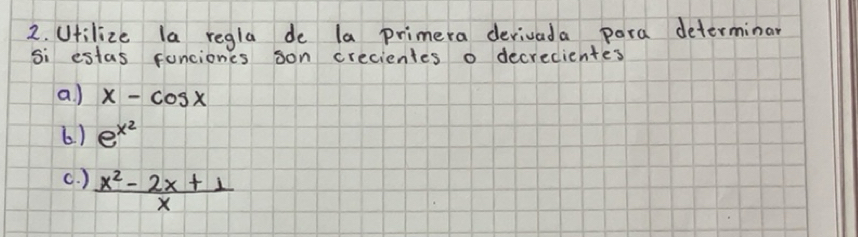 2. Utilize la regla de la primera derivada para determinar
si estas funciones son crecientes o decrecientes
a.) x - cosx
b.) e^x²
c.) x² - 2x + 1
x